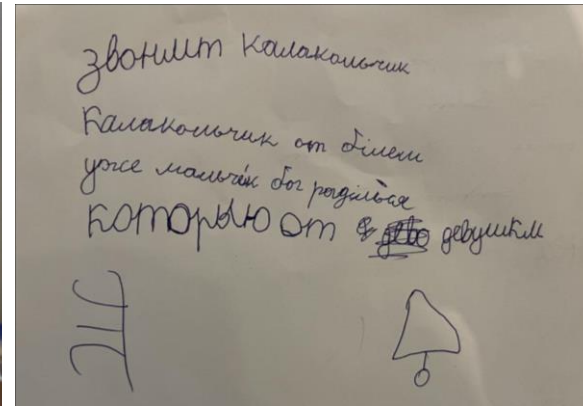 звонит калакольчик
Калакольчик от білем
уже мальчік бог роділься
которыю от девушкм